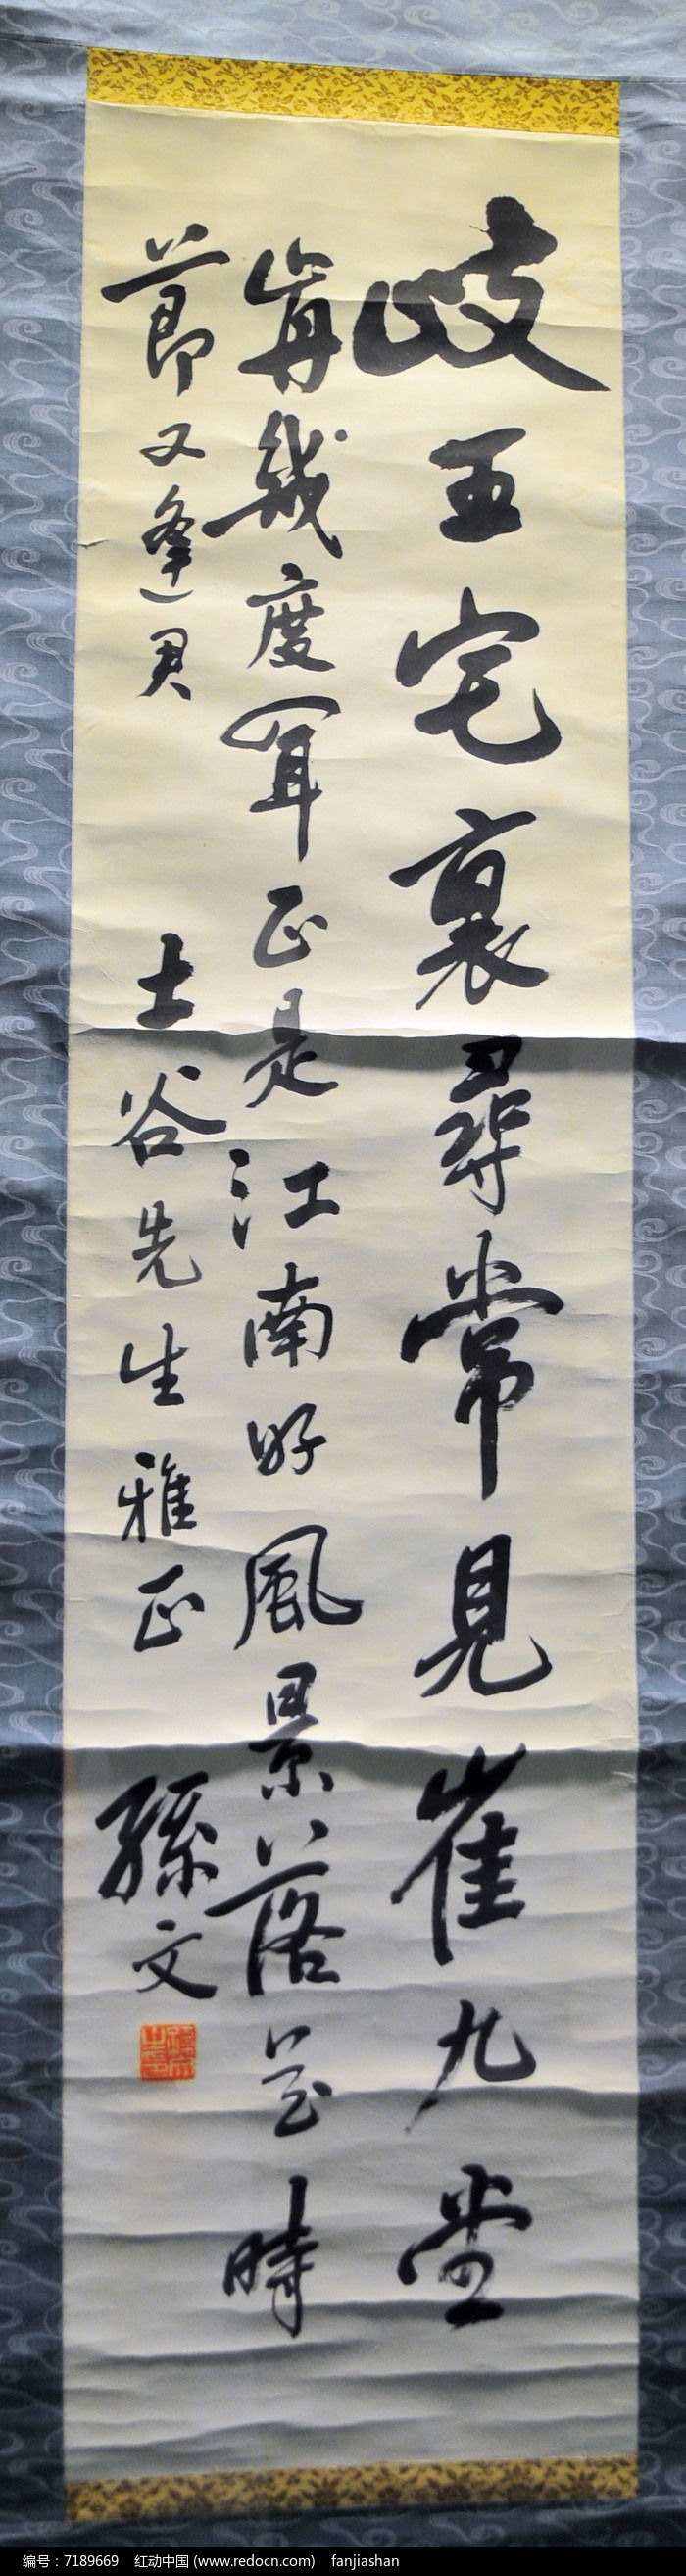 岐王宅裏尋常見崔九堂
前幾度聞正是江南好風景落花時
節又逢君
土谷先生雅正
孫文
编号：7189669 红动中国 (www.redocn.com) fanjiashan